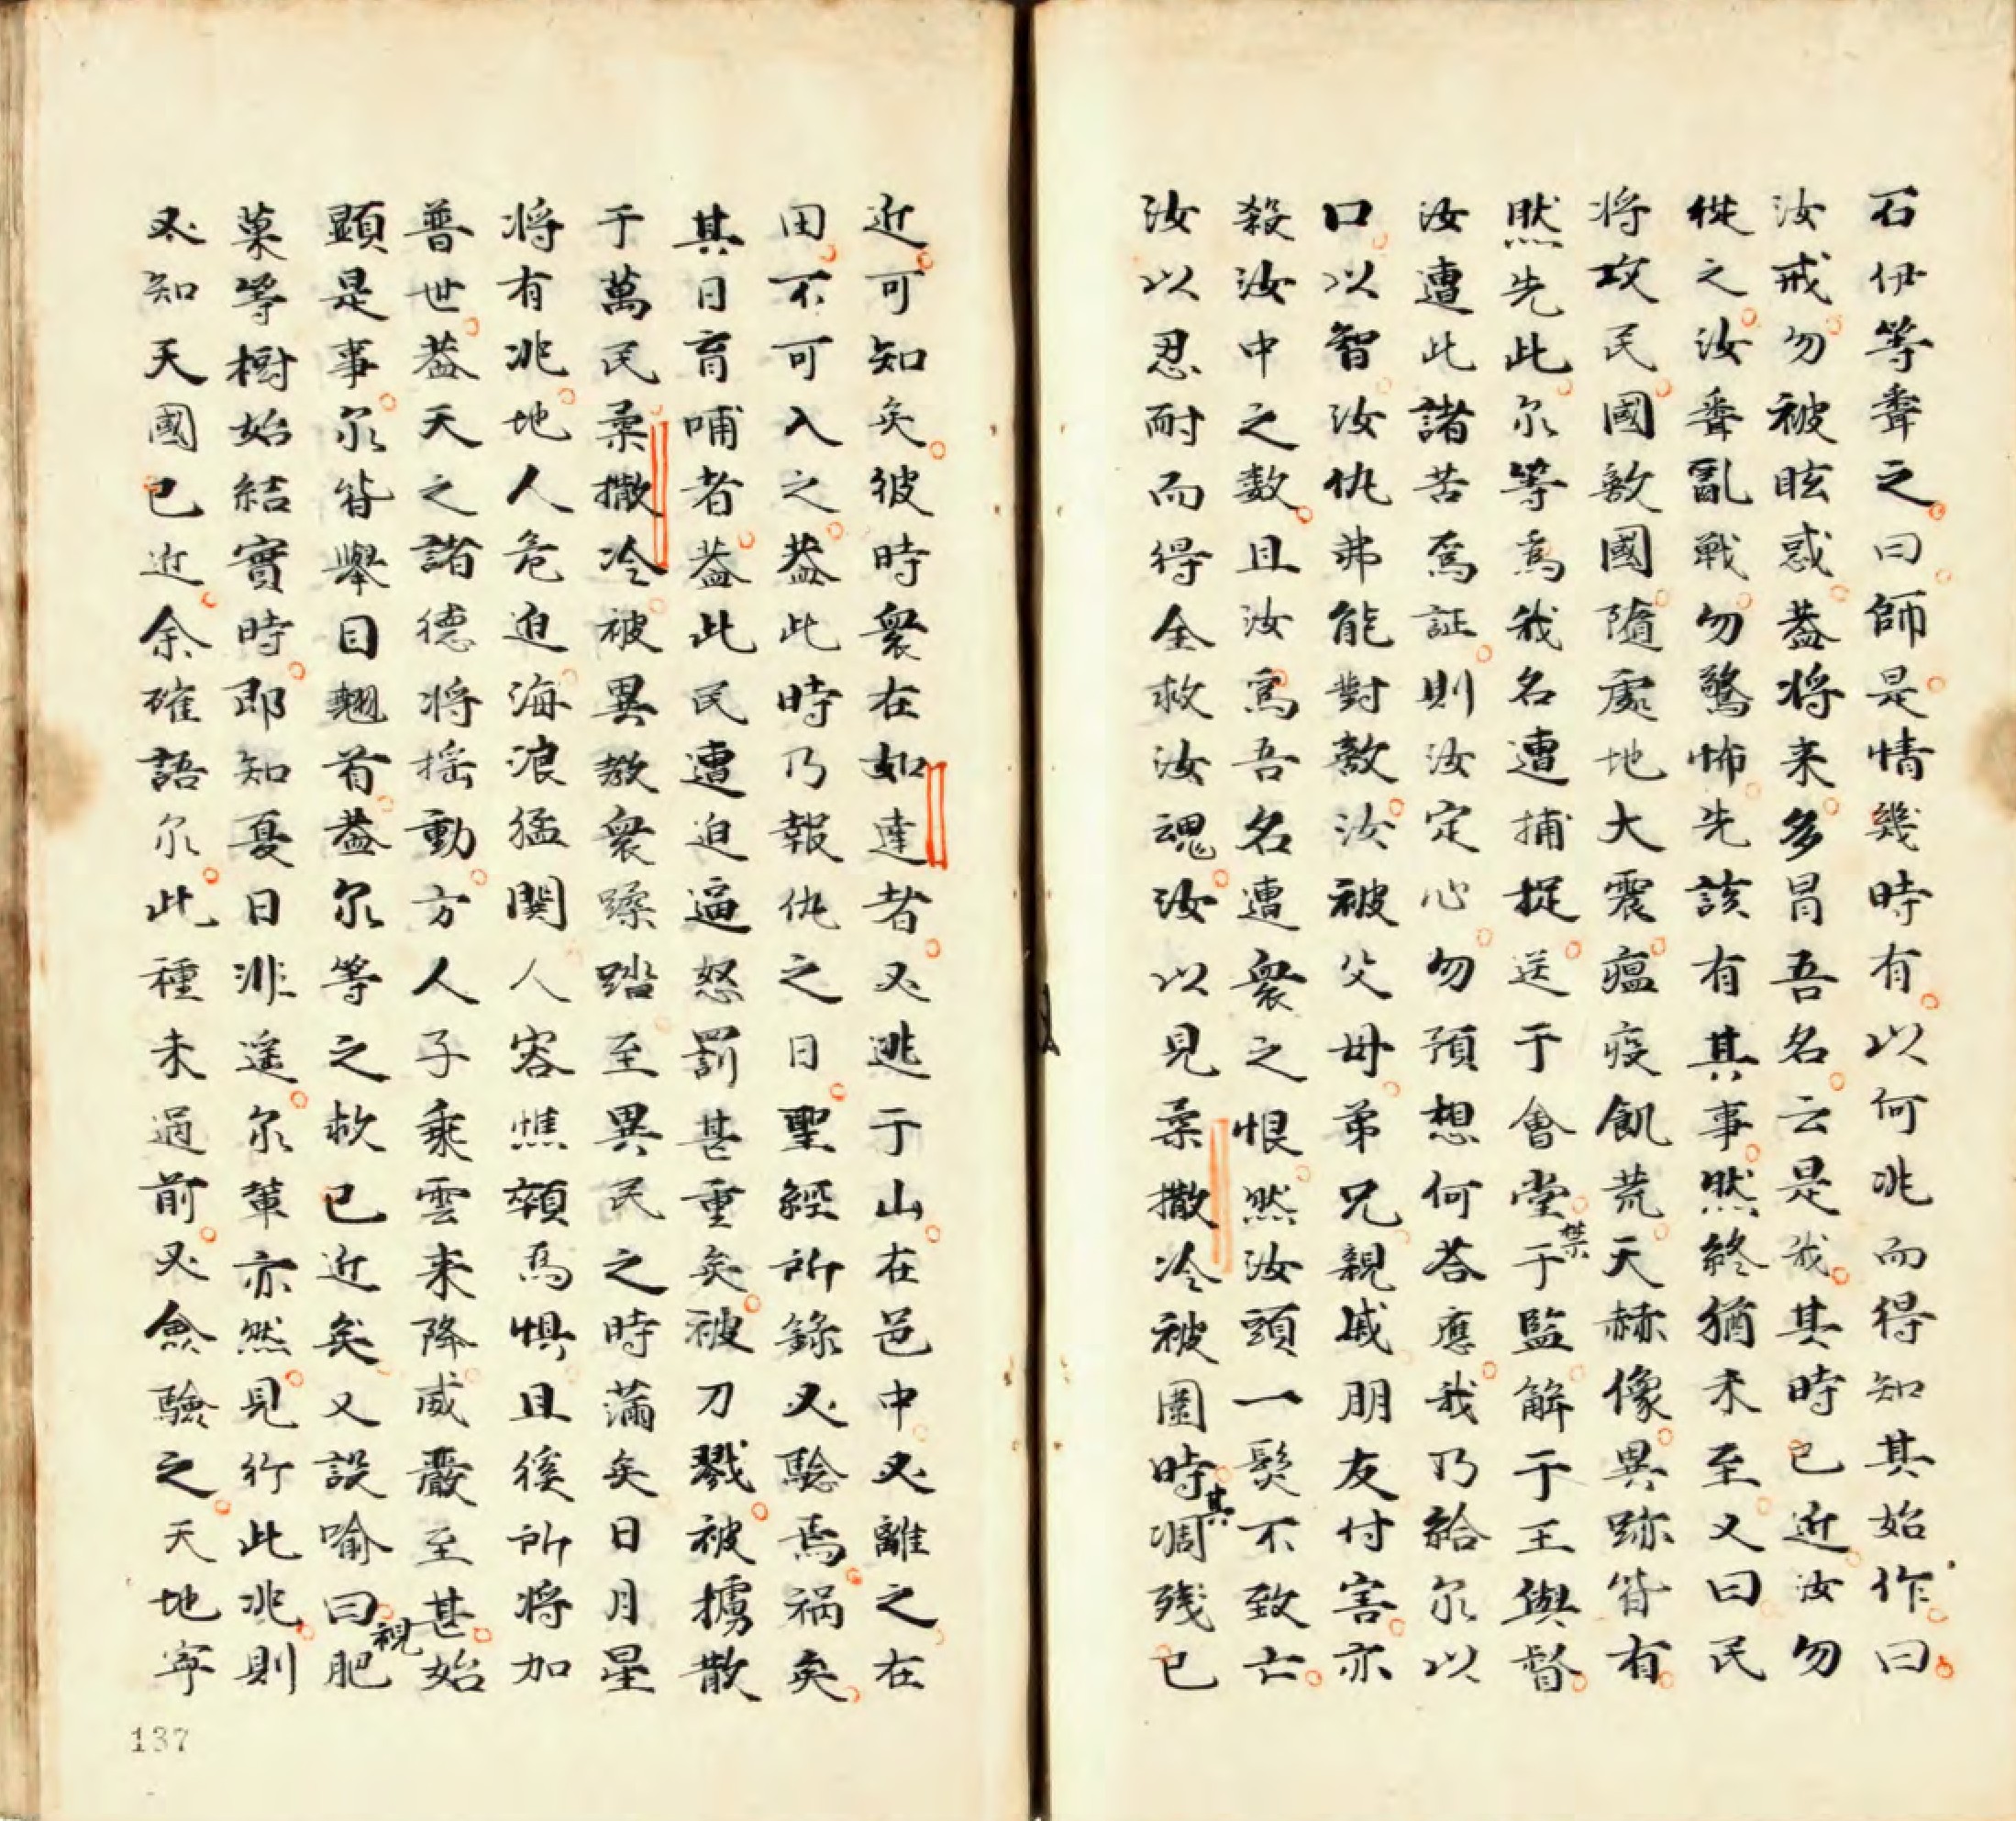 石伊等聲之曰師是情幾時有以何兆而得知其始作曰
汝戒勿被眩惑葢将来多冒吾名云是我其時已近汝勿
從之汝聲亂戰勿驚怖先該有其事然終猶未至又曰民
将攻民國敵國隨處地大震瘟疫飢荒天赫像異跡皆有
然先此尔等爲我名遭捕捉送于會堂于禁監解于王與督
汝遭此諸苦爲証則汝定心勿預想何荅應我乃給尔以
口以智汝仇弗能對敵汝被父母弟兄親戚朋友付害亦
殺汝中之数且汝爲吾名遭衆之恨然汝頭一髮不致亡
汝以忍耐而得全救汝魂汝以見柔撒冷被圍時其凋残已
近可知矣彼時衆在如達者必逃于山在邑中必離之在
田不可入之葢此時乃報仇之日聖經所錄必騐焉禍矣
其日育哺者葢此民遭迫逼怒罰甚重矣被刀戮被擄散
于萬民柔撒冷被異教衆蹂踏至異民之時滿矣日月星
将有兆地人危迫海浪猛閧人容憔顇爲惧且後所将加
普世葢天之諸德将摇動方人子乘雲来降威嚴至甚始
顯是事尔皆舉目翹首葢尔等之救已近矣又設喻曰視肥
菓等樹始結實時即知夏日非遥尔輩亦然見行此兆則
必知天國已近余確語尔此種未過前必僉驗之天地寧
137